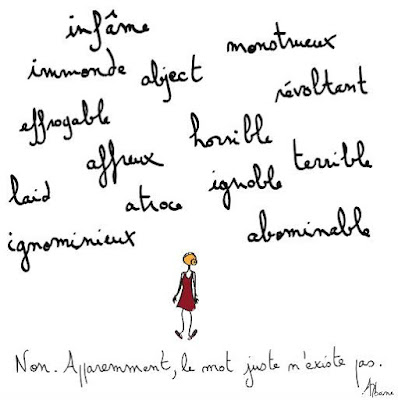 infâme
monstrueux
immonde
abject
révoltant
effroyable
horrible
affreux
terrible
ignoble
laid
atroce
abominable
ignominieux
Non. Apparemment, le mot juste n'existe pas.
Albane